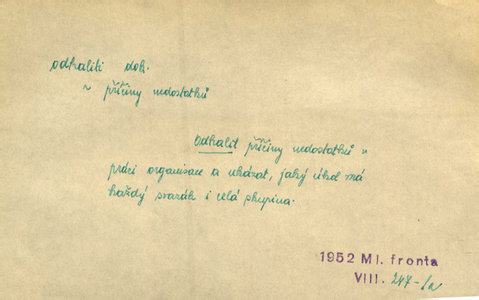 odhaliti dok.
~ příčiny nedostatků
Odhalit příčiny nedostatků v
práci organisace a ukázat, jaký úkol má
každý svazák i celá skupina.
1952 Ml. fronta
VIII. 247-1a